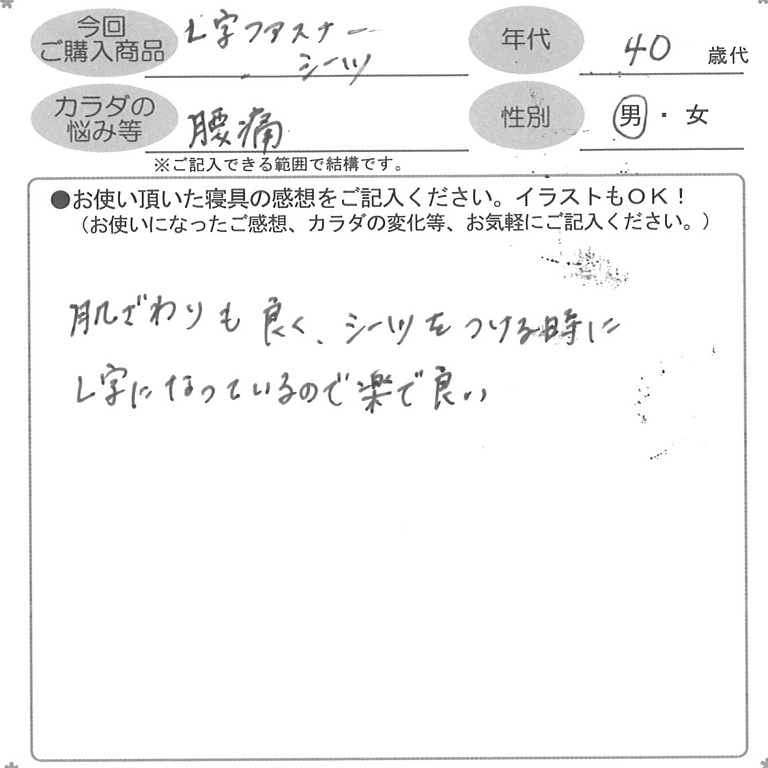 今回
ご購入商品
L字ファスナー
シーツ
年代
40 歳代
カラダの
悩み等
腰痛
性別
男・女
※ご記入できる範囲で結構です。
●お使い頂いた寝具の感想をご記入ください。イラストもOK！
（お使いになったご感想、カラダの変化等、お気軽にご記入ください。）
肌ざわりも良く、シーツをつける時に
L字になっているので楽で良い